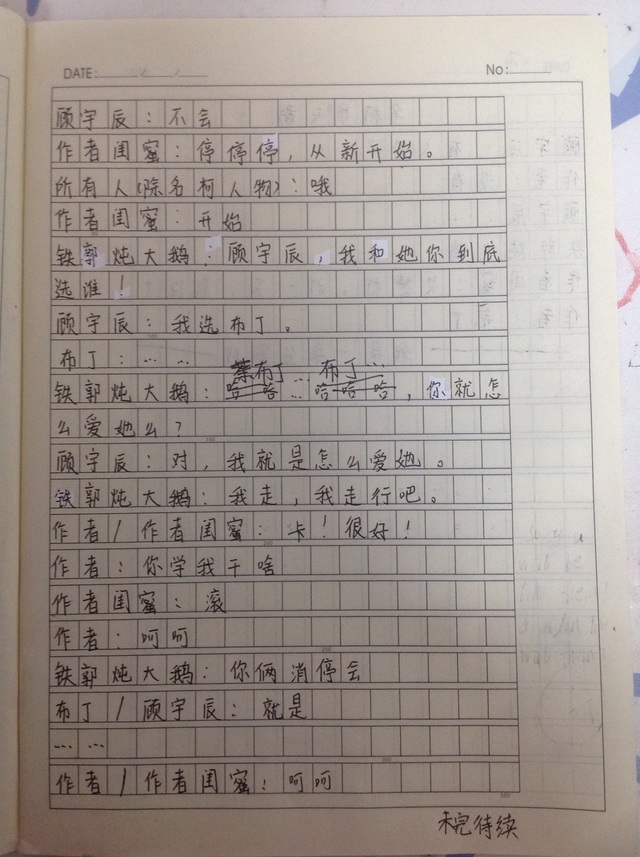 DATE:
No:
顾宇辰:不会
作者闺蜜:停停停,从新开始。
所有人(除名柯人物):哦
作者闺蜜:开始
铁郭炖大鹅:顾宇辰,我和她你到底
选谁!
顾宇辰:我选布丁。
布丁:……
蔡布丁…布丁…
铁郭炖大鹅:哈哈…哈哈哈,你就怎
么爱她么?
顾宇辰:对,我就是怎么爱她。
铁郭炖大鹅:我走,我走行吧。
作者/作者闺蜜:卡!很好!
作者:你学我干啥
作者闺蜜:滚
作者:呵呵
铁郭炖大鹅:你俩消停会
布丁/顾宇辰:就是
……
作者/作者闺蜜:呵呵
未完待续